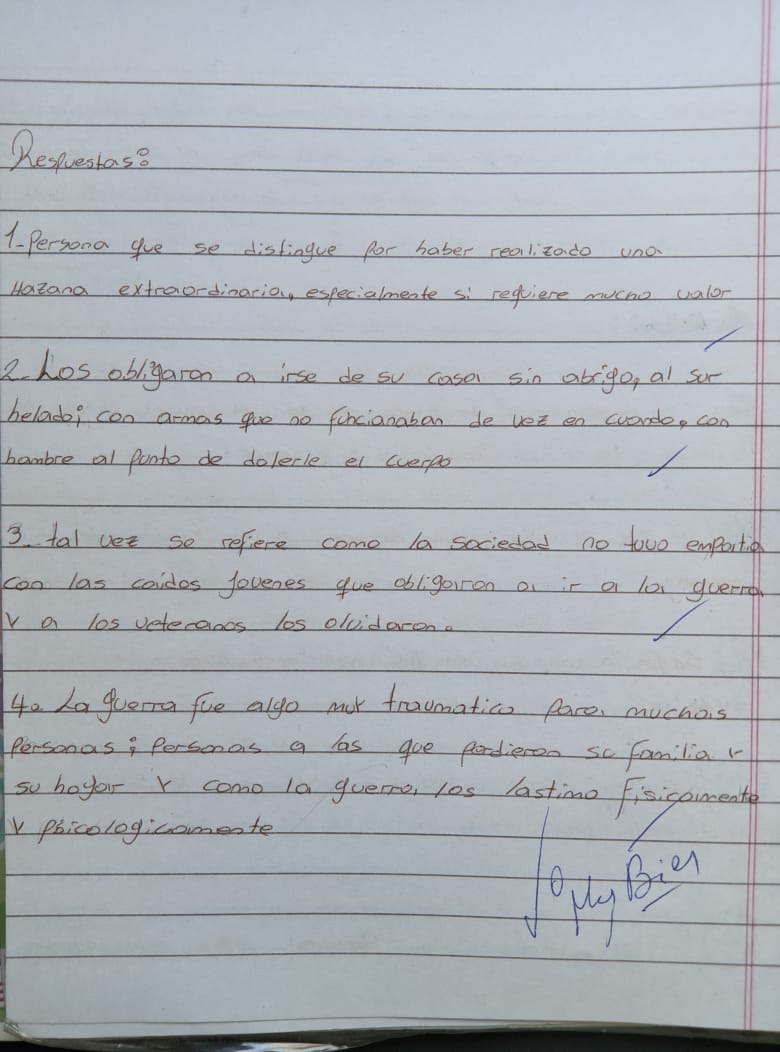 Respuestas:
1-Persona que se distingue por haber realizado una
Hazana extraordinaria, especialmente si requiere mucho valor
2-Los obligaron a irse de su casa sin abrigo, al sur
helado; con armas que no funcionaban de vez en cuando, con
hambre al punto de dolerle el cuerpo
3-tal vez se refiere como la sociedad no tuvo empatia
con las caidos jovenes que obligaron a ir a la guerra
Y a los veteranos los olvidaron.
4. La guerra fue algo muy traumatico para muchas
personas; personas a las que perdieron su familia y
su hogar Y como la guerra los lastimo fisicamente
Y psicologicamente
Muy Bien